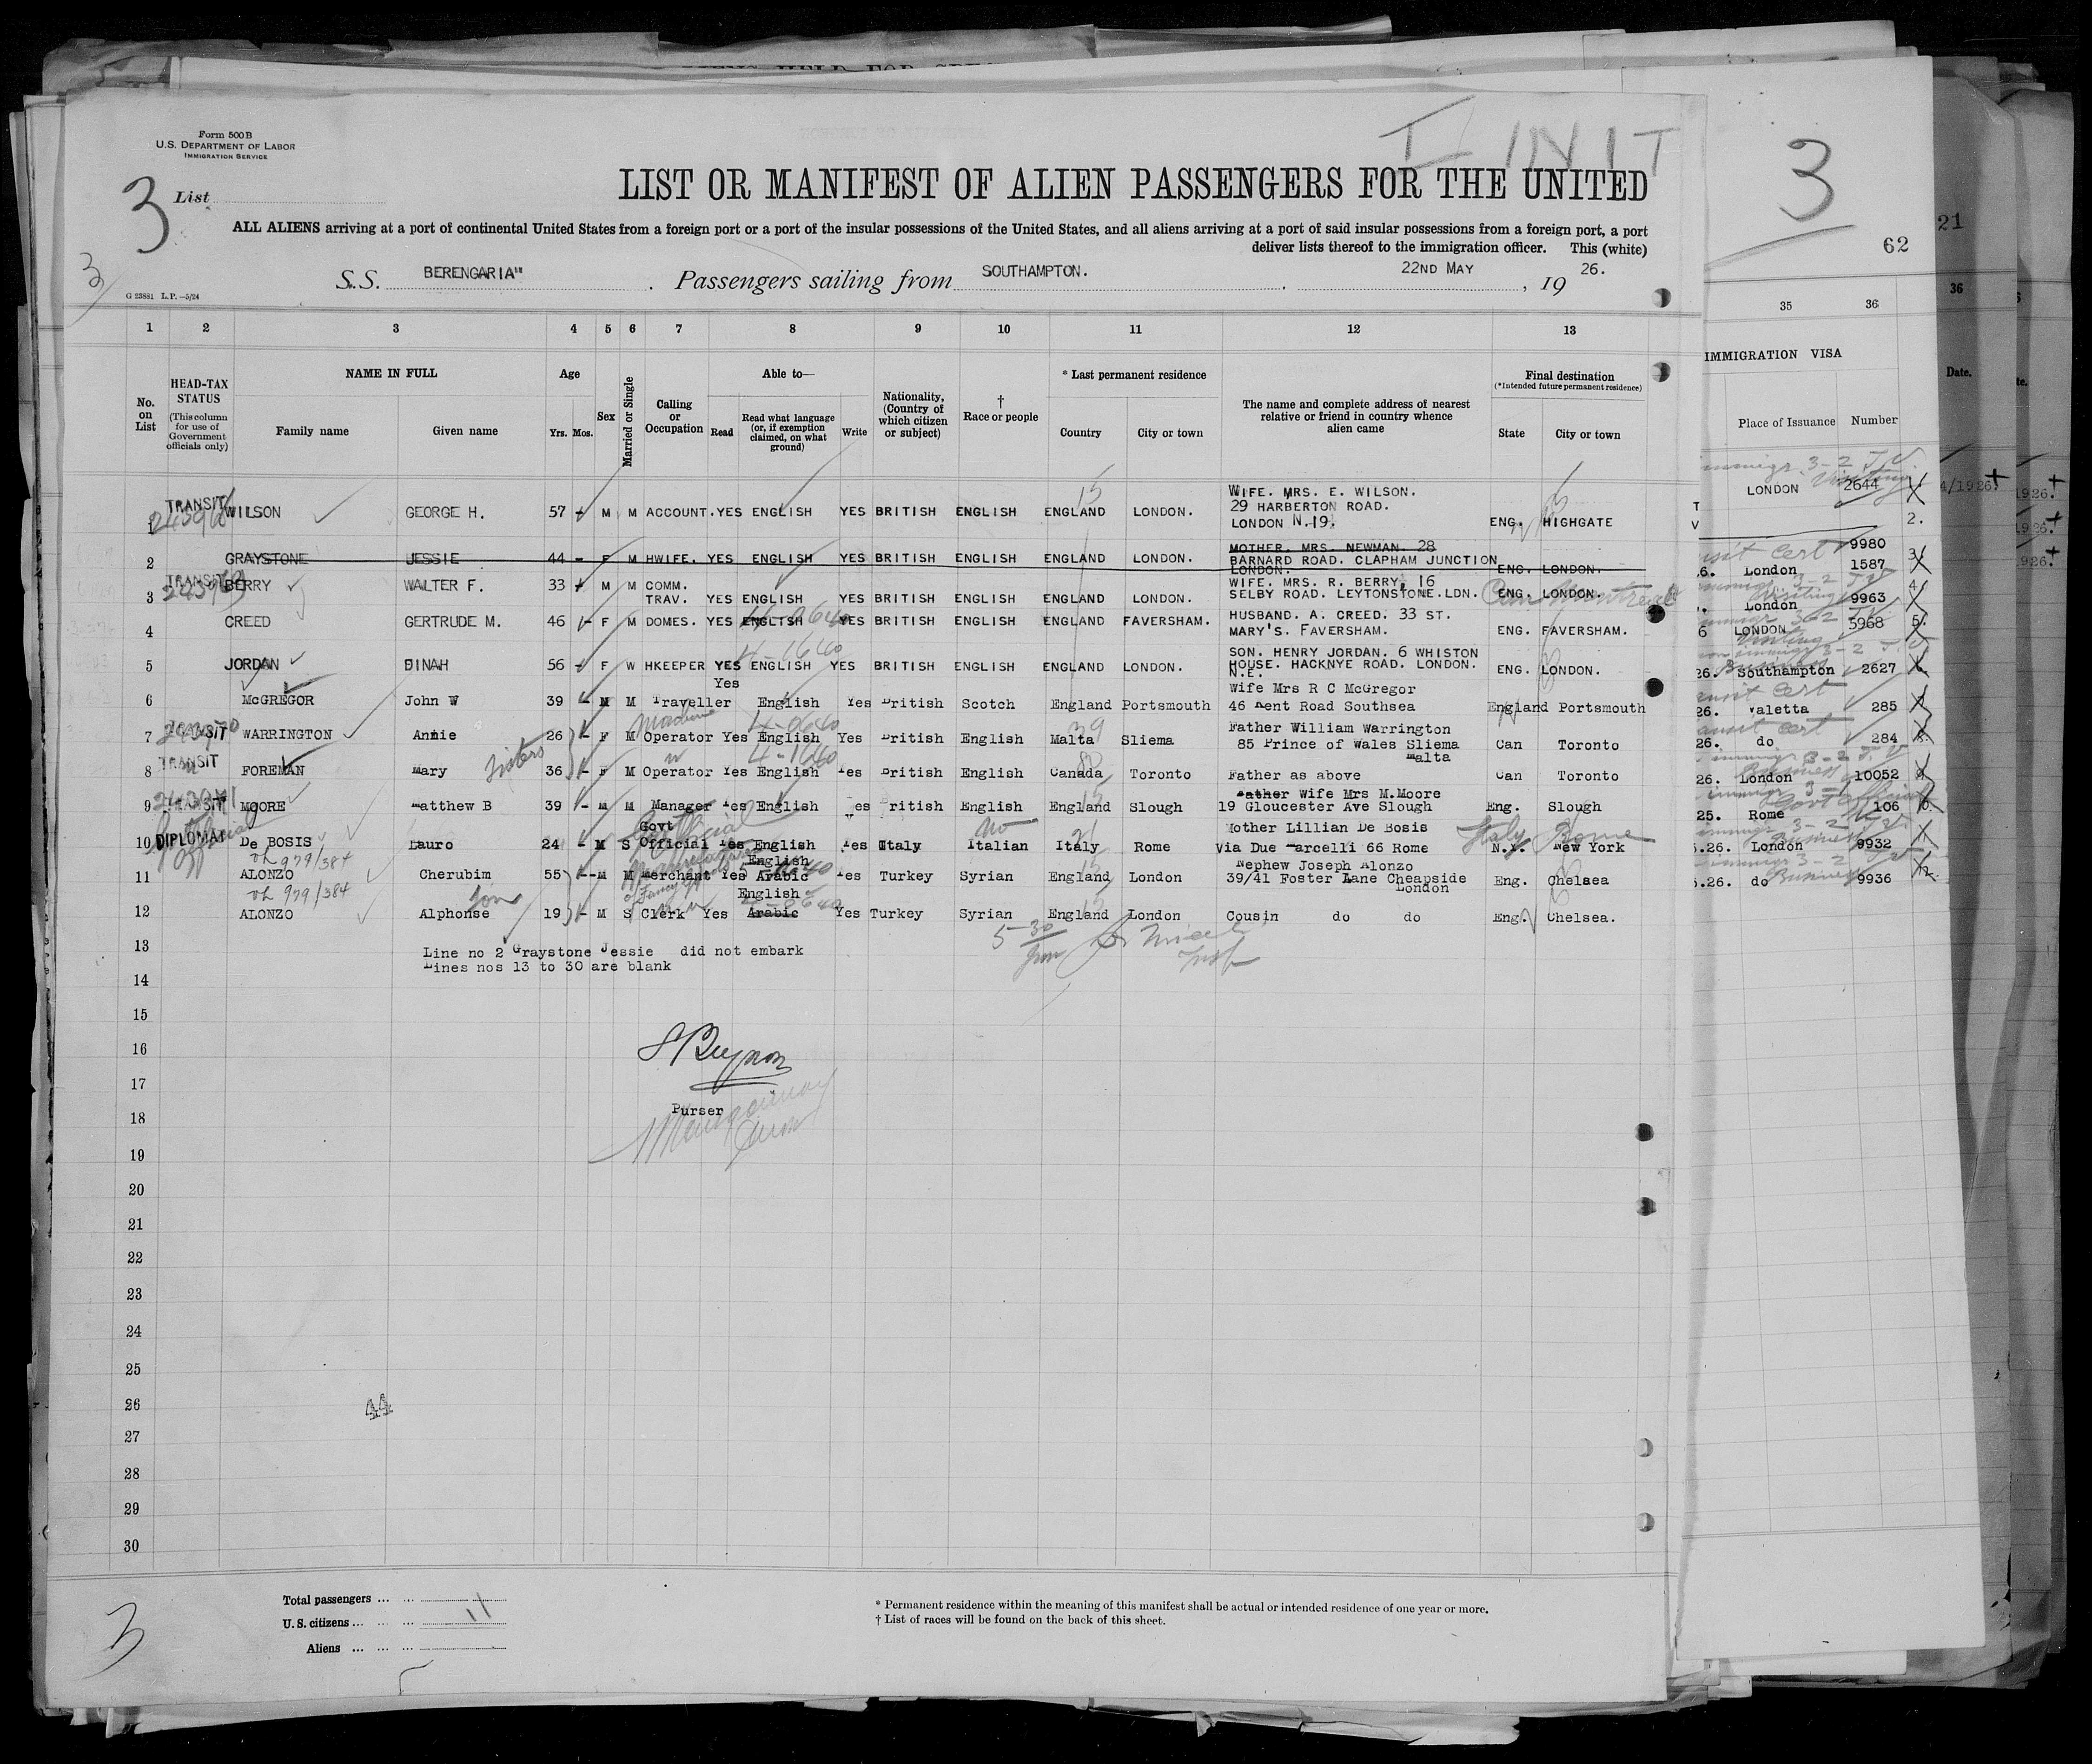 Form 500B
U.S. DEPARTMENT OF LABOR
IMMIGRATION SERVICE
3 List
3
LIST OR MANIFEST OF ALIEN PASSENGERS FOR THE UNITED
ALL ALIENS arriving at a port of continental United States from a foreign port or a port of the insular possessions of the United States, and all aliens arriving at a port of said insular possessions from a foreign port, a port
deliver lists thereof to the immigration officer. This (white)
S.S. BERENGARIA" . Passengers sailing from SOUTHAMPTON. . 22ND MAY , 19 26.
G 23881 L.P.—5/24
1 2 3 4 5 6 7 8 9 10 11 12 13
No. on List
HEAD-TAX STATUS
(This column for use of Government officials only)
NAME IN FULL
Family name Given name
Age
Yrs. Mos.
Sex
Married or Single
Calling or Occupation
Able to—
Read
Read what language (or, if exemption claimed, on what ground)
Write
Nationality, (Country of which citizen or subject)
† Race or people
* Last permanent residence
Country City or town
The name and complete address of nearest relative or friend in country whence alien came
Final destination
(*Intended future permanent residence)
State City or town
1 TRANSIT WILSON GEORGE H. 57 M M ACCOUNT. YES ENGLISH YES BRITISH ENGLISH ENGLAND LONDON. WIFE. MRS. E. WILSON. 29 HARBERTON ROAD. LONDON N.19. ENG. HIGHGATE
2 GRAYSTONE JESSIE 44 - F M HWIFE. YES ENGLISH YES BRITISH ENGLISH ENGLAND LONDON. MOTHER. MRS. NEWMAN. 28 BARNARD ROAD. CLAPHAM JUNCTION LONDON. ENG. LONDON.
3 TRANSIT BERRY WALTER F. 33 M M COMM. TRAV. YES ENGLISH YES BRITISH ENGLISH ENGLAND LONDON. WIFE. MRS. R. BERRY, 16 SELBY ROAD. LEYTONSTONE.LDN. ENG. LONDON. Can Montreal
4 CREED GERTRUDE M. 46 - F M DOMES. YES ENGLISH YES BRITISH ENGLISH ENGLAND FAVERSHAM. HUSBAND. A. CREED. 33 ST. MARY'S. FAVERSHAM. ENG. FAVERSHAM.
5 JORDAN DINAH 56 - F W HKEEPER YES ENGLISH YES BRITISH ENGLISH ENGLAND LONDON. SON. HENRY JORDAN. 6 WHISTON HOUSE. HACKNYE ROAD. LONDON. N.E. ENG. LONDON.
6 McGREGOR John W 39 - M M Traveller Yes English Yes British Scotch England Portsmouth Wife Mrs R C McGregor 46 Kent Road Southsea England Portsmouth
7 TRANSIT WARRINGTON Annie 26 - F M Machine Operator Yes English Yes British English Malta Sliema Father William Warrington 85 Prince of Wales Sliema Malta Can Toronto
8 TRANSIT FOREMAN Mary Sisters 36 - F M Operator Yes English Yes British English Canada Toronto Father as above Can Toronto
9 TRANSIT MOORE Matthew B 39 - M M Manager Yes English Yes British English England Slough Father Wife Mrs M.Moore 19 Gloucester Ave Slough Eng. Slough
10 DIPLOMAT De BOSIS Lauro 24 - M S Govt Official Yes English Yes Italy Italian Italy Rome Mother Lillian De Bosis Via Due Marcelli 66 Rome N.Y. New York Italy Rome
11 ALONZO Cherubim 55 - M M Merchant Yes English Arabic Yes Turkey Syrian England London Nephew Joseph Alonzo 39/41 Foster Lane Cheapside London Eng. Chelsea
12 ALONZO Alphonse son 19 - M S Clerk Yes English Arabic Yes Turkey Syrian England London Cousin do do Eng. Chelsea.
13 Line no 2 Graystone Jessie did not embark
Lines nos 13 to 30 are blank
14
15
16
17
Purser
18
19
20
21
22
23
24
25
26
44
27
28
29
30
Total passengers ... ...
U.S. citizens ... ... ... 11
Aliens ... ... ...
* Permanent residence within the meaning of this manifest shall be actual or intended residence of one year or more.
† List of races will be found on the back of this sheet.
3
3
62
35 36
IMMIGRATION VISA
Place of Issuance Number
LONDON 2644
2.
9980
London 1587
London 9963
LONDON 5968
Southampton 2627
Valetta 285
do 284
London 10052
Rome 106
London 9932
do 9936
21
36
Date.